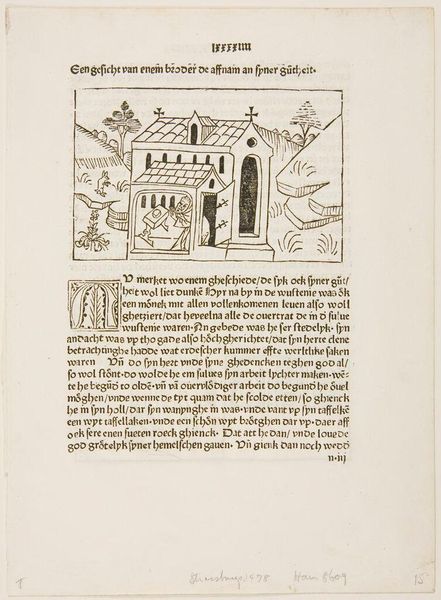 lxxxxiiii
Een gesicht van enem brôder de affnam an syner gůtheit.
MU merket wo enem ghescheide/de syk ock syner gůt/
heit wol liet dunkē Hyr na by in de wustenie was ôk
een mônek mit allen vollenkomenen leuen also woll
ghetziert/dat he veelna alle de ouertrat de in d suluē
wustenie waren. An gebede was he ser stedelyk. syn
andacht was vp tho gade also hôch gherichtet/dat syn herte clene
betrachtinghe hadde wat erdescher kummer effte werltlike saken
waren Vñ do syn hert vnde syne ghedencken teghen god al/
so wol stônt. do wolde he em sulues syn arbeit lychter maken. wē/
te he begūd to oldē. vñ vā ouervlôdiger arbeit do begund he ôuel
môghen/vnde wenne de tyt quam dat he scolde etten/so ghienck
he in syn holl/dar syn wanynghe in was. vnde vant vp syn taffelkē
een wyt taffellaken. vnde een schôn wyt brôtghen dar vp. daer aff
ock sere enen sueten roeck ghienck. Dat att he dan/vnde louede
god grôtelyk syner hemelschen gauen. Vñ gienk dan noch wedd
n iij
Strassburg 1478 Hain 8609 15